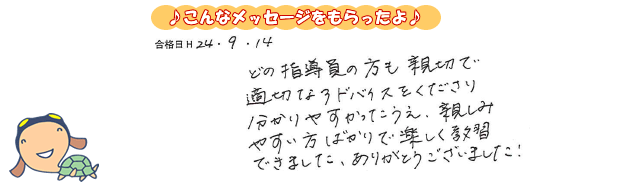 ♪こんなメッセージをもらったよ♪
合格日 H 24・9・14
どの指導員の方も親切で
適切なアドバイスをくださり
分かりやすかったうえ、親しみ
やすい方ばかりで楽しく教習
できました、ありがとうございました!